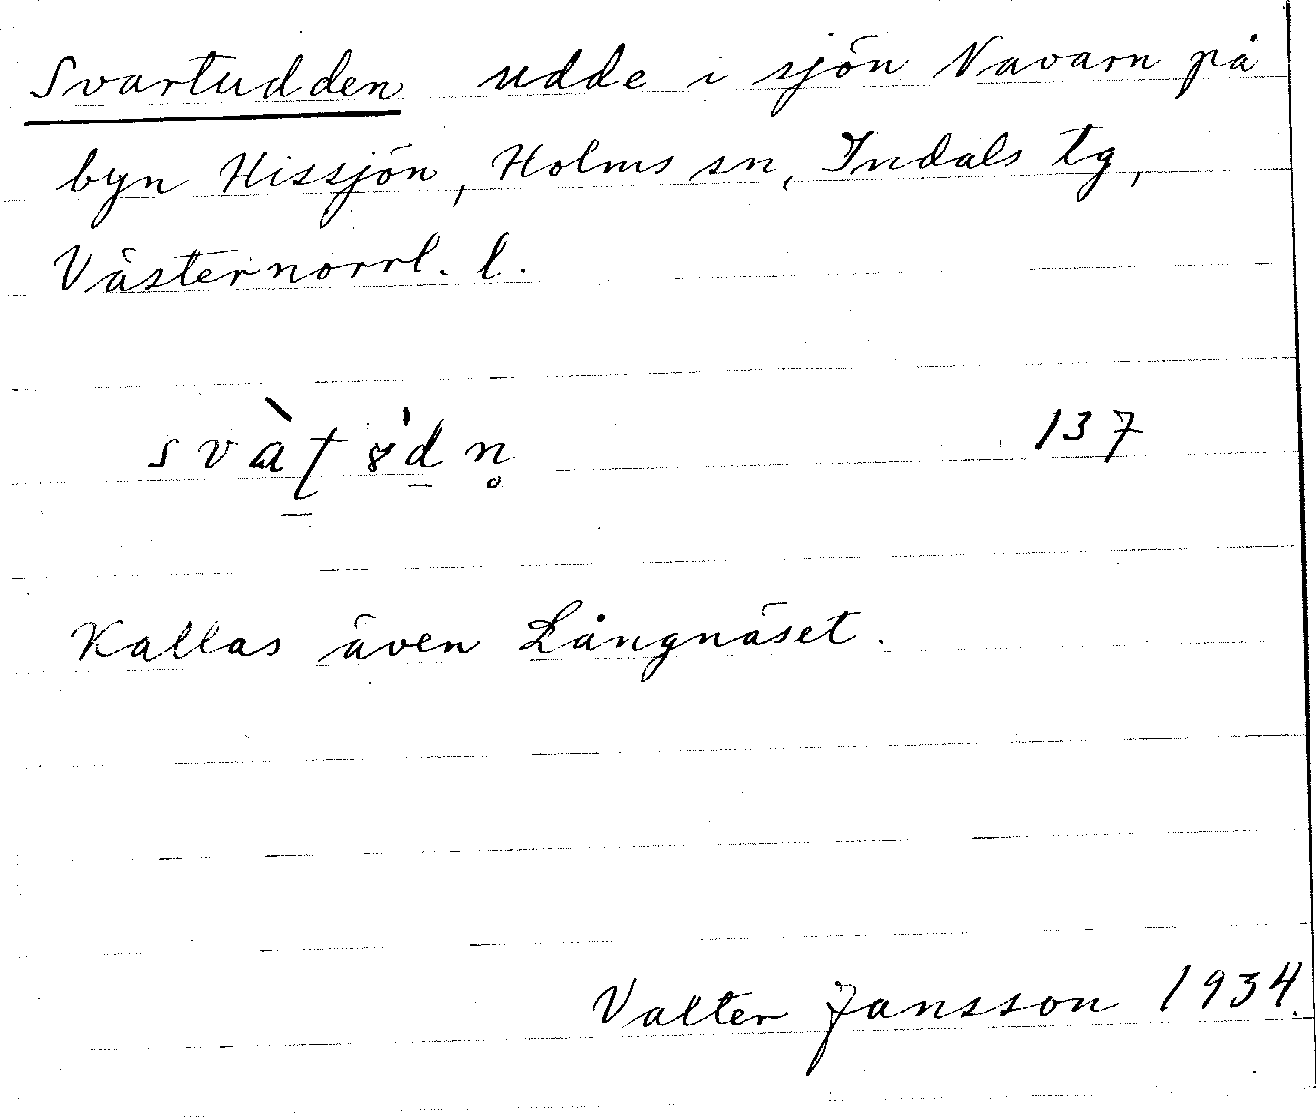 Svartudden udde i sjön Navarn på
byn Hissjön, Holms sn, Indals tg,
Västernorrl. l.
svàʈ 8̍d n̥ 137
Kallas även Långnäset.
Valter Jansson 1934.